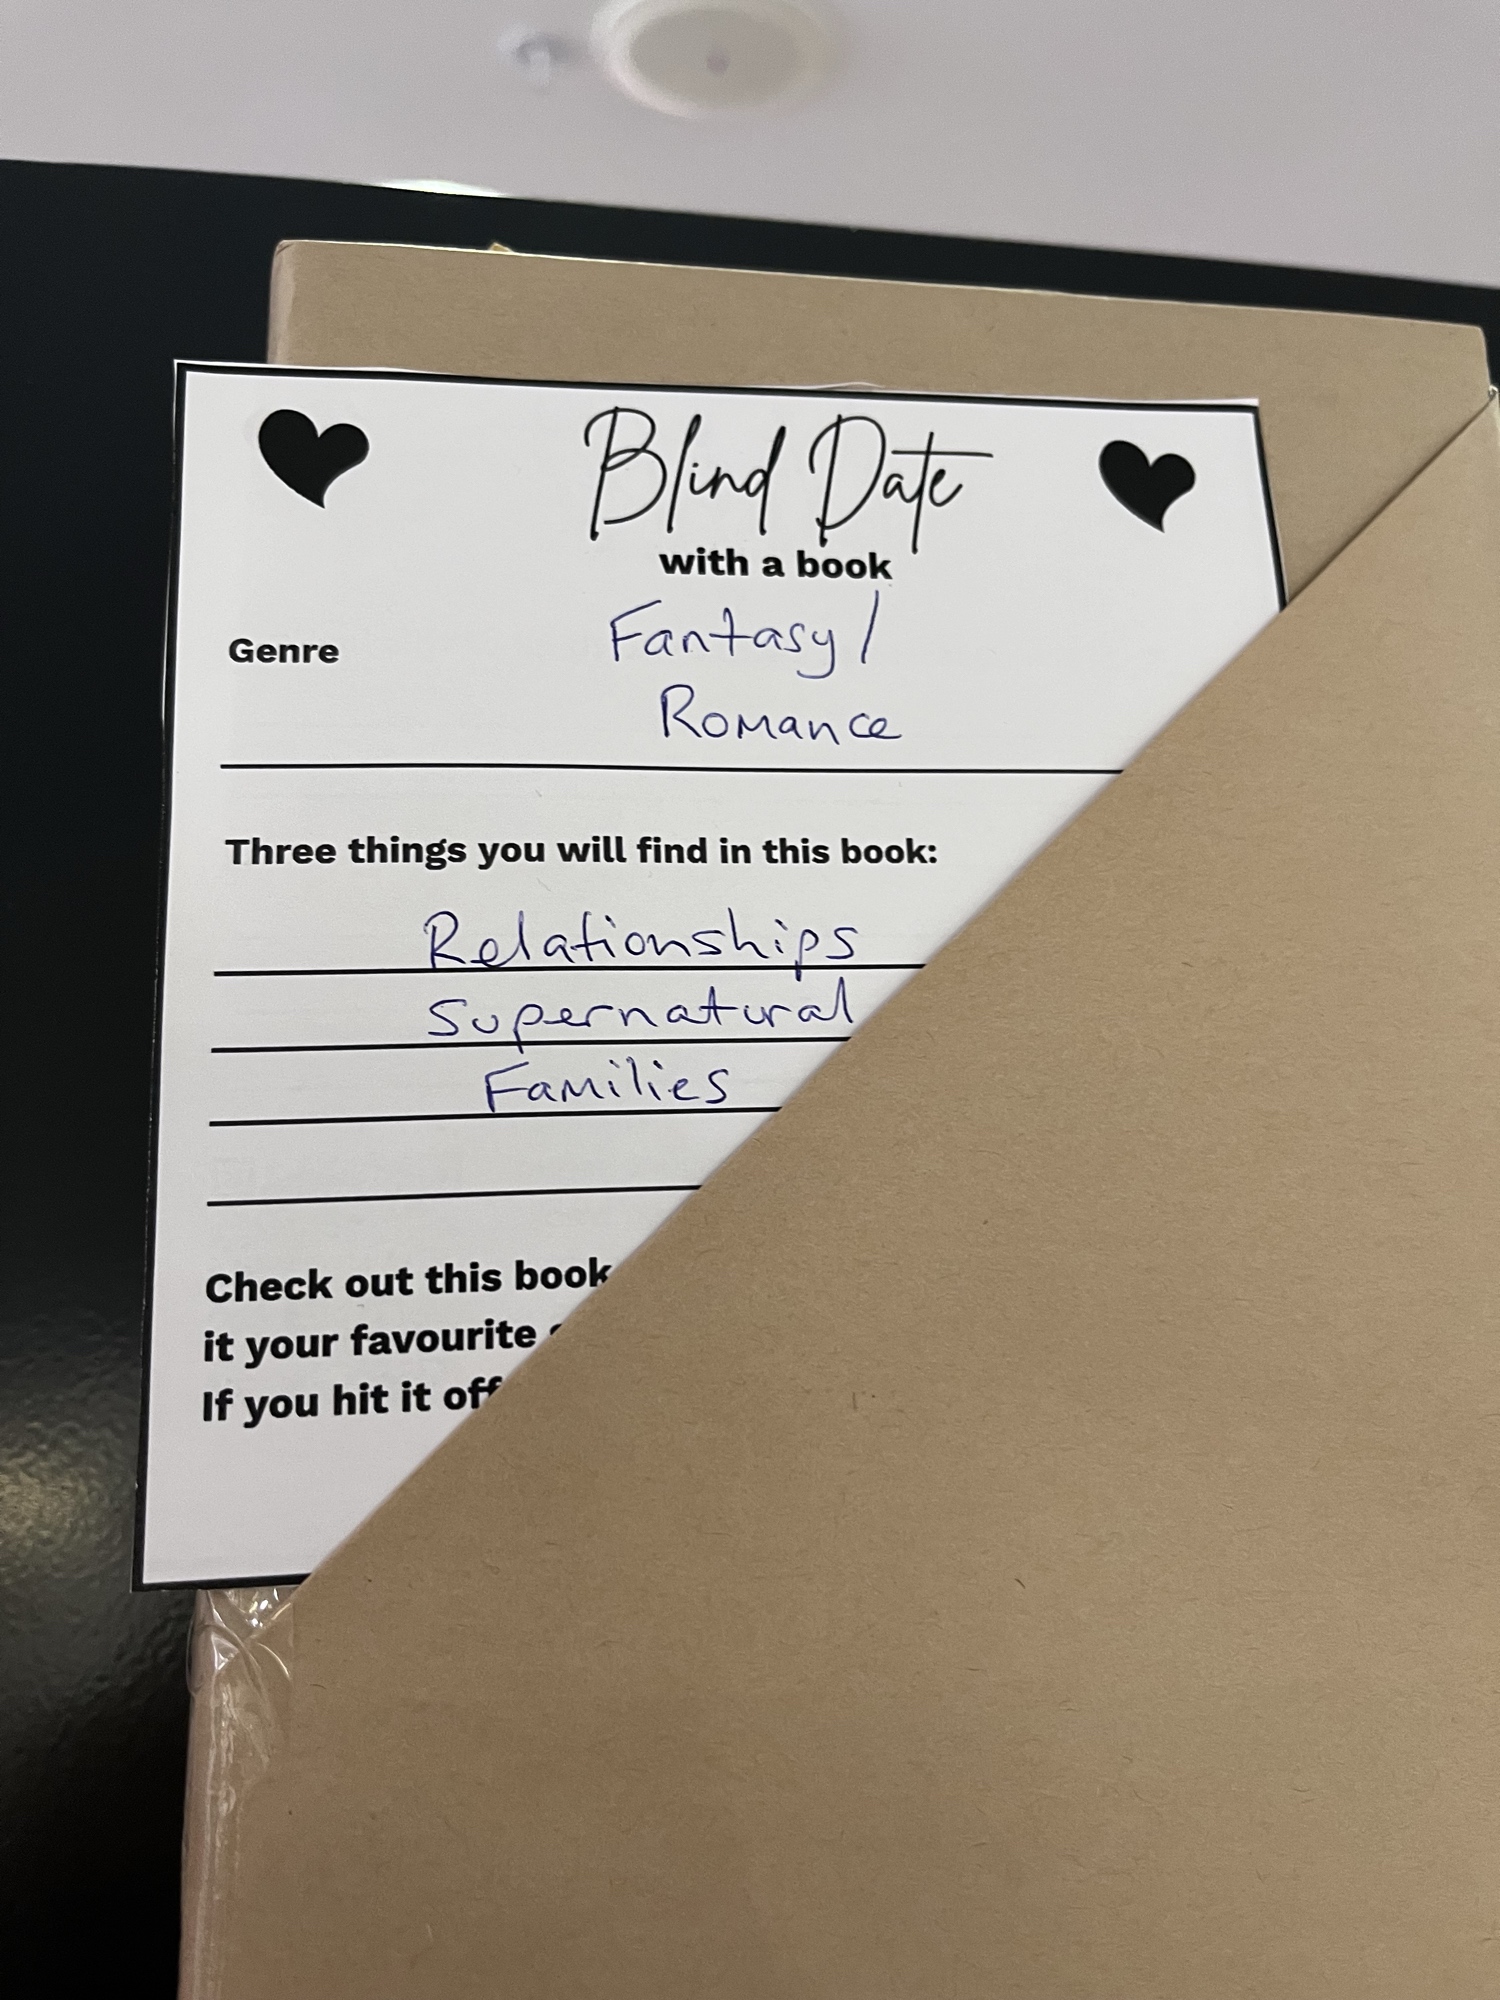 Blind Date
with a book
Genre Fantasy /
Romance
Three things you will find in this book:
Relationships
Supernatural
Families
Check out this book
it your favourite
If you hit it off